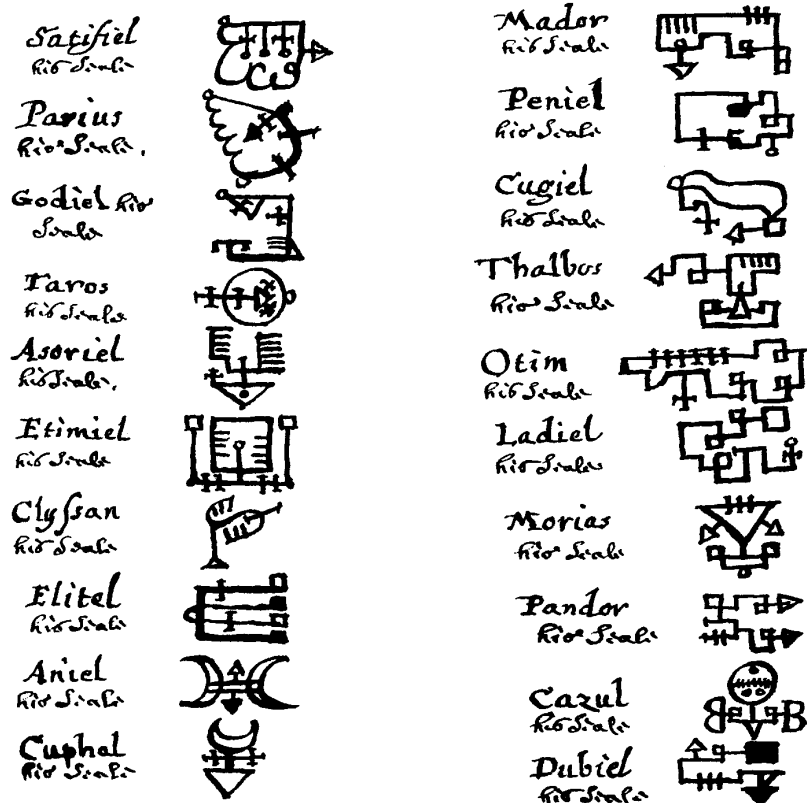 Satifiel
his Seale
Parius
his Seale.
Godiel his
Seale
Taros
his Seale
Asoriel
his Seale.
Etimiel
his Seale
Clyſsan
his Seale
Elitel
his Seale
Aniel
his Seale
Cuphal
his Seale
Mador
his Seale
Peniel
his Seale
Cugiel
his Seale
Thalbus
his Seale
Otim
his Seale
Ladiel
his Seale
Morias
his Seale
Pandor
his Seale
Cazul
his Seale
Dubiel
his Seale